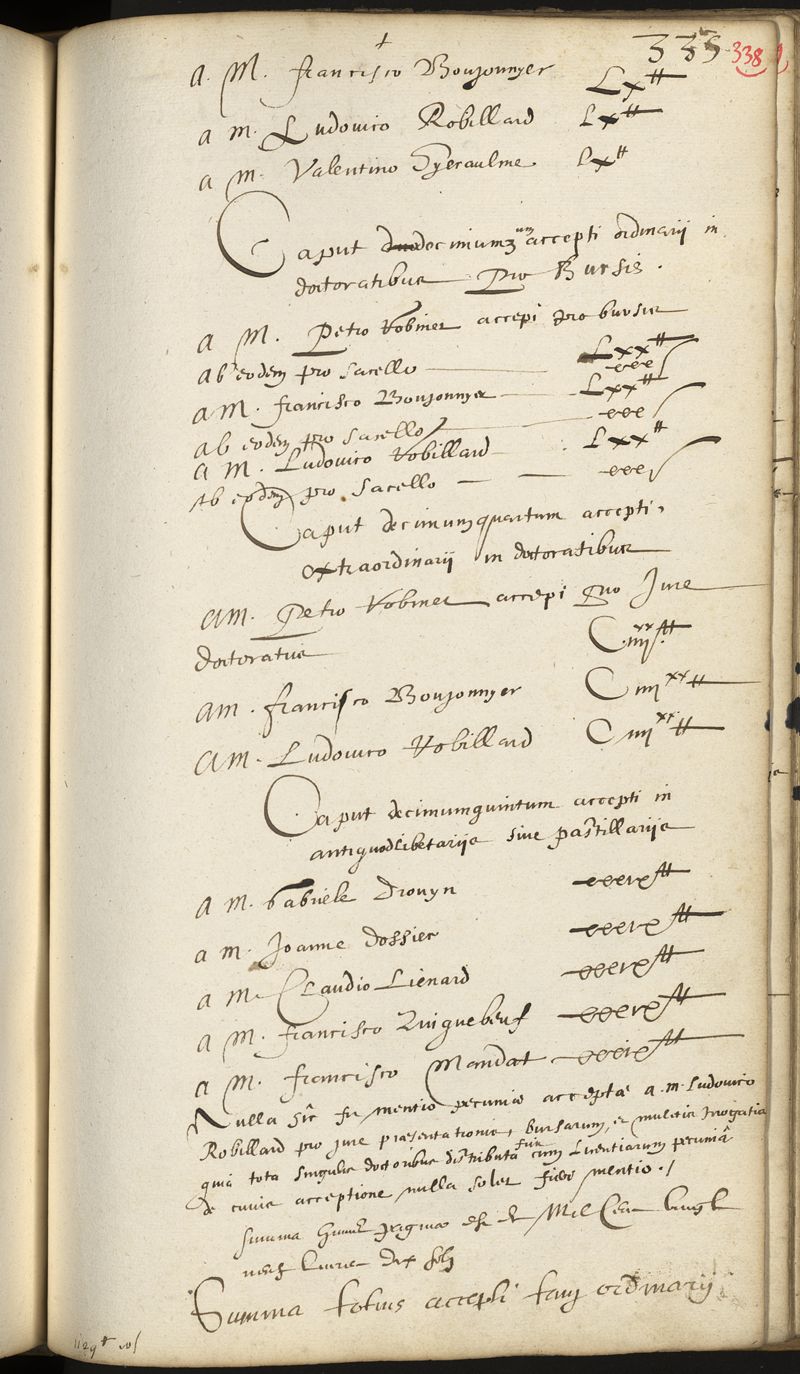 335 338
A. M. Francisco Boujonnyer Lx ₶
A M. Ludovico Robillard Lx ₶
A M. Valentino Hyeraulme Lx ₶
Caput decimum accepti ordinarii in
doctoratibus pro Bursis.
A M. Petro Robiner accepi pro bursis
Lxx ₶
ab eodem pro sacello
A M. Francisco Boujonnyer Lxx ₶
ab eodem pro sacello
A M. Ludovico Robillard Lxx ₶
Ab eodem pro sacello
Caput decimumquartum accepti
extraordinarii in doctoratibus
A M. Petro Robiner accepi pro Jure
doctoratus C iiii xx ₶
A M. Francisco Boujonnyer C iiii xx ₶
A M. Ludovico Robillard C iiii xx ₶
Caput decimumquintum accepti in
antiquodlibetariis sive pastillariis
A M. Gabriele Drouyn
A M. Joanne Dossier
A M. Claudio Lienard
A M. Francisco Quiquebeuf
A M. Francisco Mandat
Nulla hic fit mentio pecuniæ acceptæ a M. Ludovico
Robillard pro jure præsentationis, bursarum, et
quia tota singulis doctoribus distributa cum Licentiarum pecuniâ
de cuius acceptione nulla solet fieri mentio.
Summa paginæ est de Mil Cent vingt
neuf livres dix solz
Summa totius accepti tam ordinarij
1129 ₶ 10 s